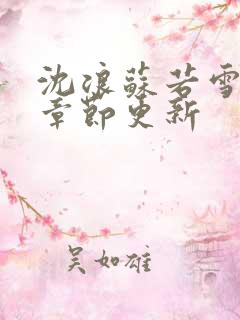 沈浪蘇若雪
章節更新
吴如雄